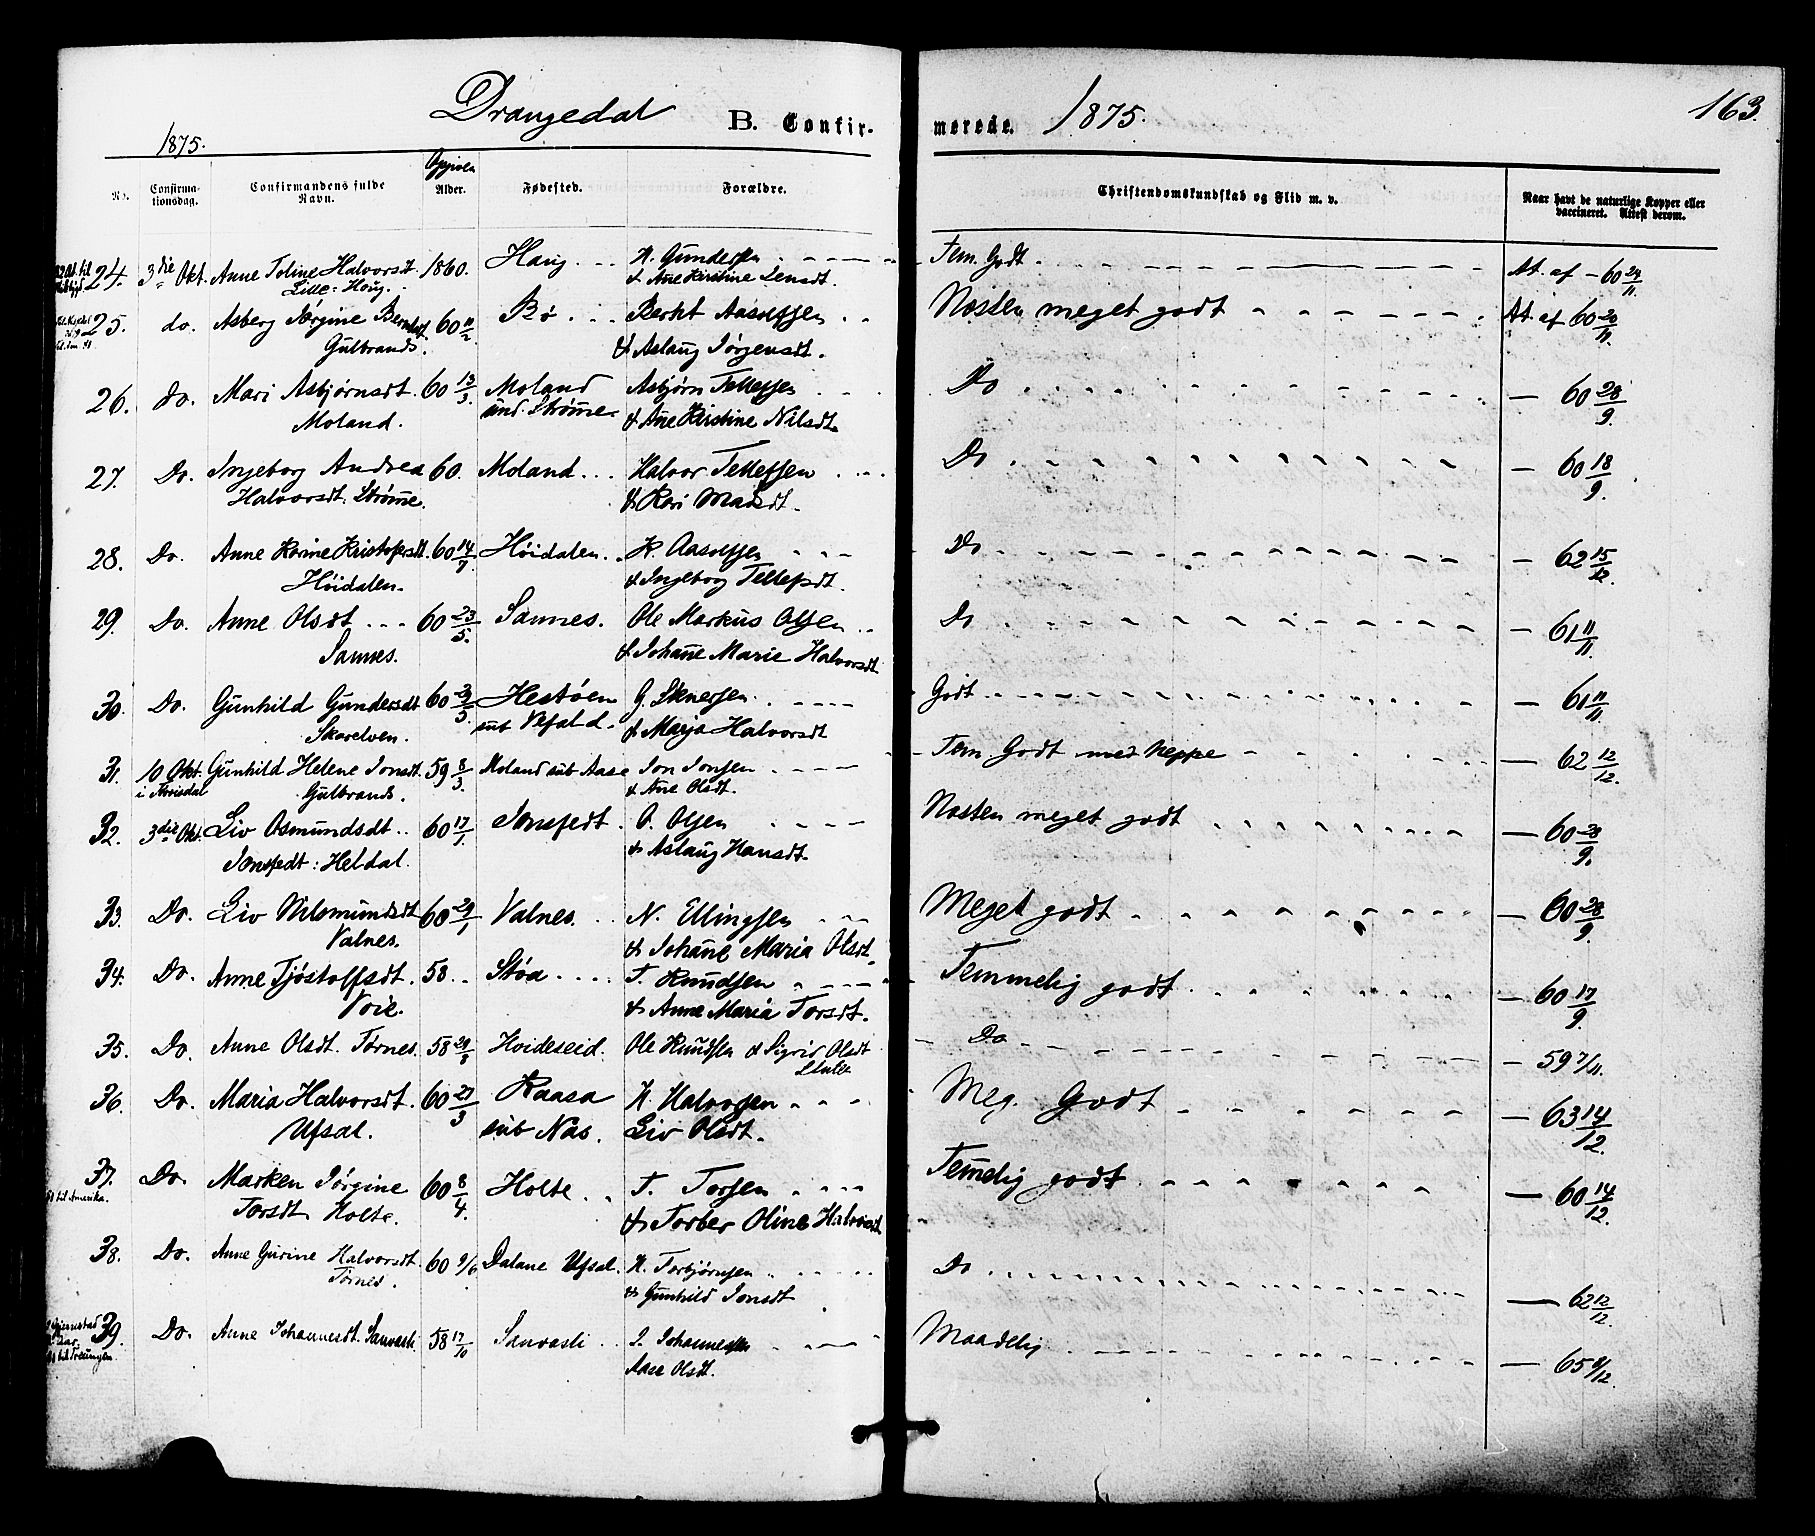 Drangedal B. Confir-
1875.
No.
Confirma-
tionsdag.
Confirmandens fulde
Navn.
Alder.
Fødested.
Forældre.
24. 3die Okt. Anne Toline Halvorsdt. 1860. Haug H. Gundersen
Lille-Houg. & Ane Kirstine Jensdt.
25. do. Asberg Jørgine Berntsdt 60 11/2 Bø Berht Aasolfsen
Gulbrands. & Aslaug Jørgensdt.
26. do. Mari Asbjørnsdt. 60 13/3 Moland Asbjørn Tellefsen
Moland. und. Strømme & Ane Kirstine Nilsdt.
27. Do. Ingeborg Andrea 60. Moland Halvor Tellefsen
Halvorsdt. Strømme. & Kari Madsdt.
28. Do. Anne Karine Kristofersdt. 60 14/7 Høidalen. K. Aasolfsen
Høidalen. & Ingeborg Tellefsdt.
29. Do. Anne Olsdt 60 23/5. Sannes. Ole Markus Olsen
Sannes. & Johanne Marie Halvorsdt
30. Do. Gunhild Gundersdt 60 Hestøen G.
& Marja Halvorsdt
31. 10 Okt. Gunhild Helene Jonsdt. 59 8/3. Moland sub Aase Jon Jonsen
Gulbrands. & Ane Olsdt.
32. 3die Okt. Liv Osmundsdt 60 17/1 Jonsfedt. O. Olsen
Jonsfedt: Heldal. & Aslaug Hansdt.
33. Do. Liv Nilsmundsdt 60 29/1 Valnes. N. Ellingsen
Valnes. & Johane Maria Olsdt.
34. Do. Anne Tjøstolfsdt. 58 Støa T. Knudsen
Voie. & Anne Maria Torsdt.
35. Do. Anne Olsdt. Tørnes. 58 Hvideseid. Ole Knudsen & Sigrid Olsdt
36. Do. Maria Halvorsdt. 60 27/3 Kaasa H. Halvorsen
Ufsal. sub Næs. Liv Olsdt.
37. Do. Marken Jørgine 60 8/4. Holte T. Torsen
til Amerika. Torsdt Holte. & Torber Oline Halvorsdt
38. Do. Anne Gurine Halvorsdt. 60 9/6 Dalane Ufsal. H. Torbjørnsen
Tørnes. & Gunhild Jonsdt
39. Do. Anne Johannesdt. Sanvasli 58 17/10 Sanvasli J. Johannesen
til Treungen. Aase Olsdt.
merede. 1875. 163.
Christendomskundskab og Flid m. v.
Naar havt de naturlige Kopper eller
vaccineret. Attest derom.
Tem. Godt. At. af - 60 24/11.
Næsten meget godt At. af 60 20/11.
Do — 60 28/9.
Do — 60 18/9.
Do — 62 15/12.
Do — 61 11/11.
Godt — 61 11/11.
Tem Godt med Neppe — 62 12/12.
Næsten meget godt — 60 28/9.
Meget godt — 60 28/9.
Temmelig godt — 60 17/9.
Do — 59 7/11.
Meg. Godt — 63 14/12.
Temelig godt — 60 14/12.
Do — 62 12/12.
Maadelig — 65 8/12.